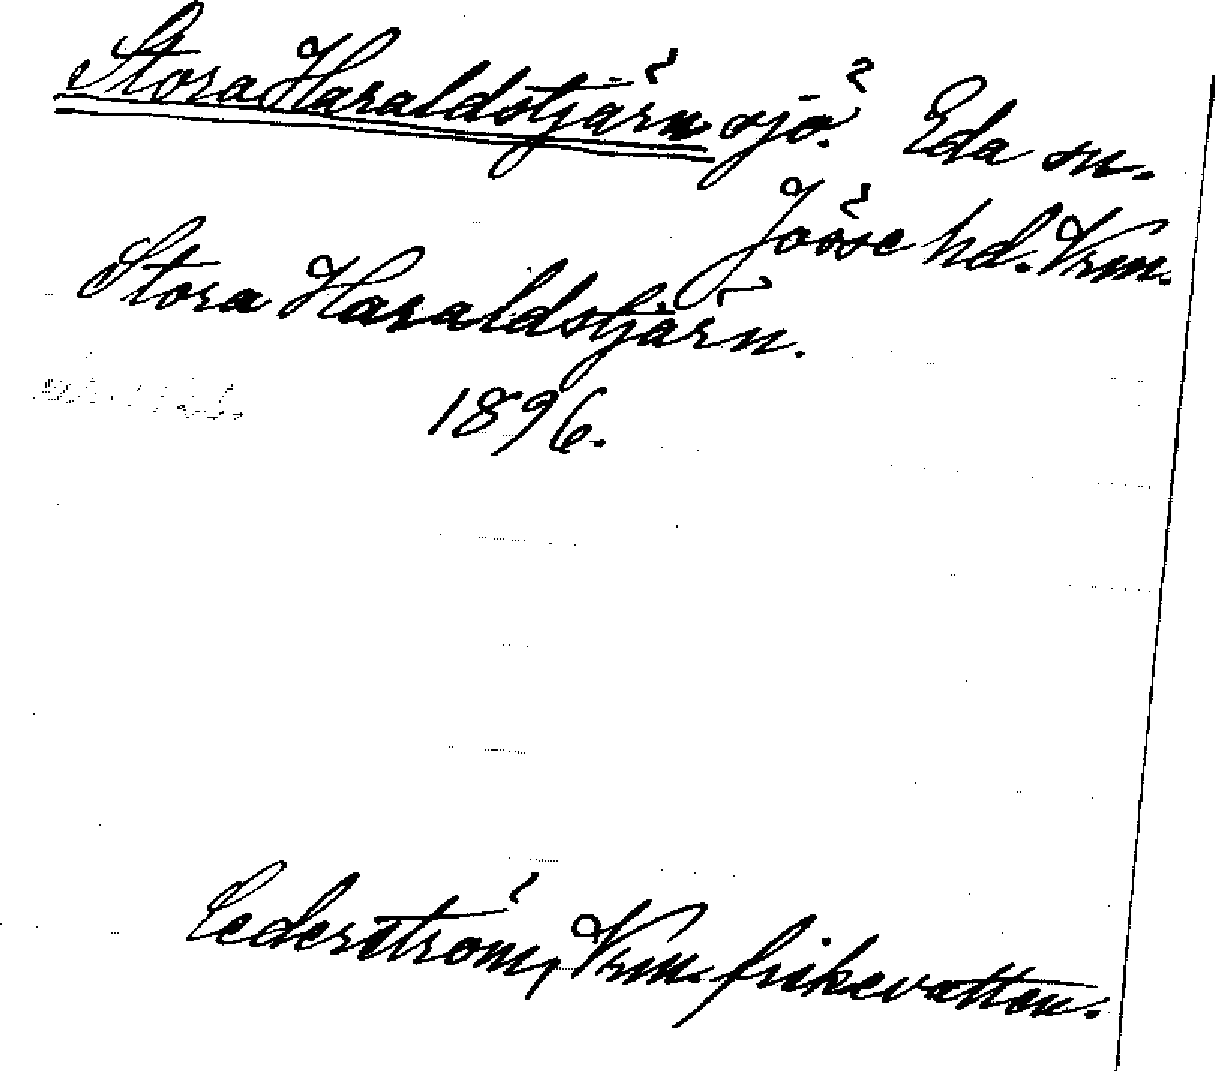 Stora Haraldstjärn sjö. Eda sn.
Jösse hd. Vrm.
Stora Haraldstjärn.
1896.
Cederström, Vrm. fiskevatten.